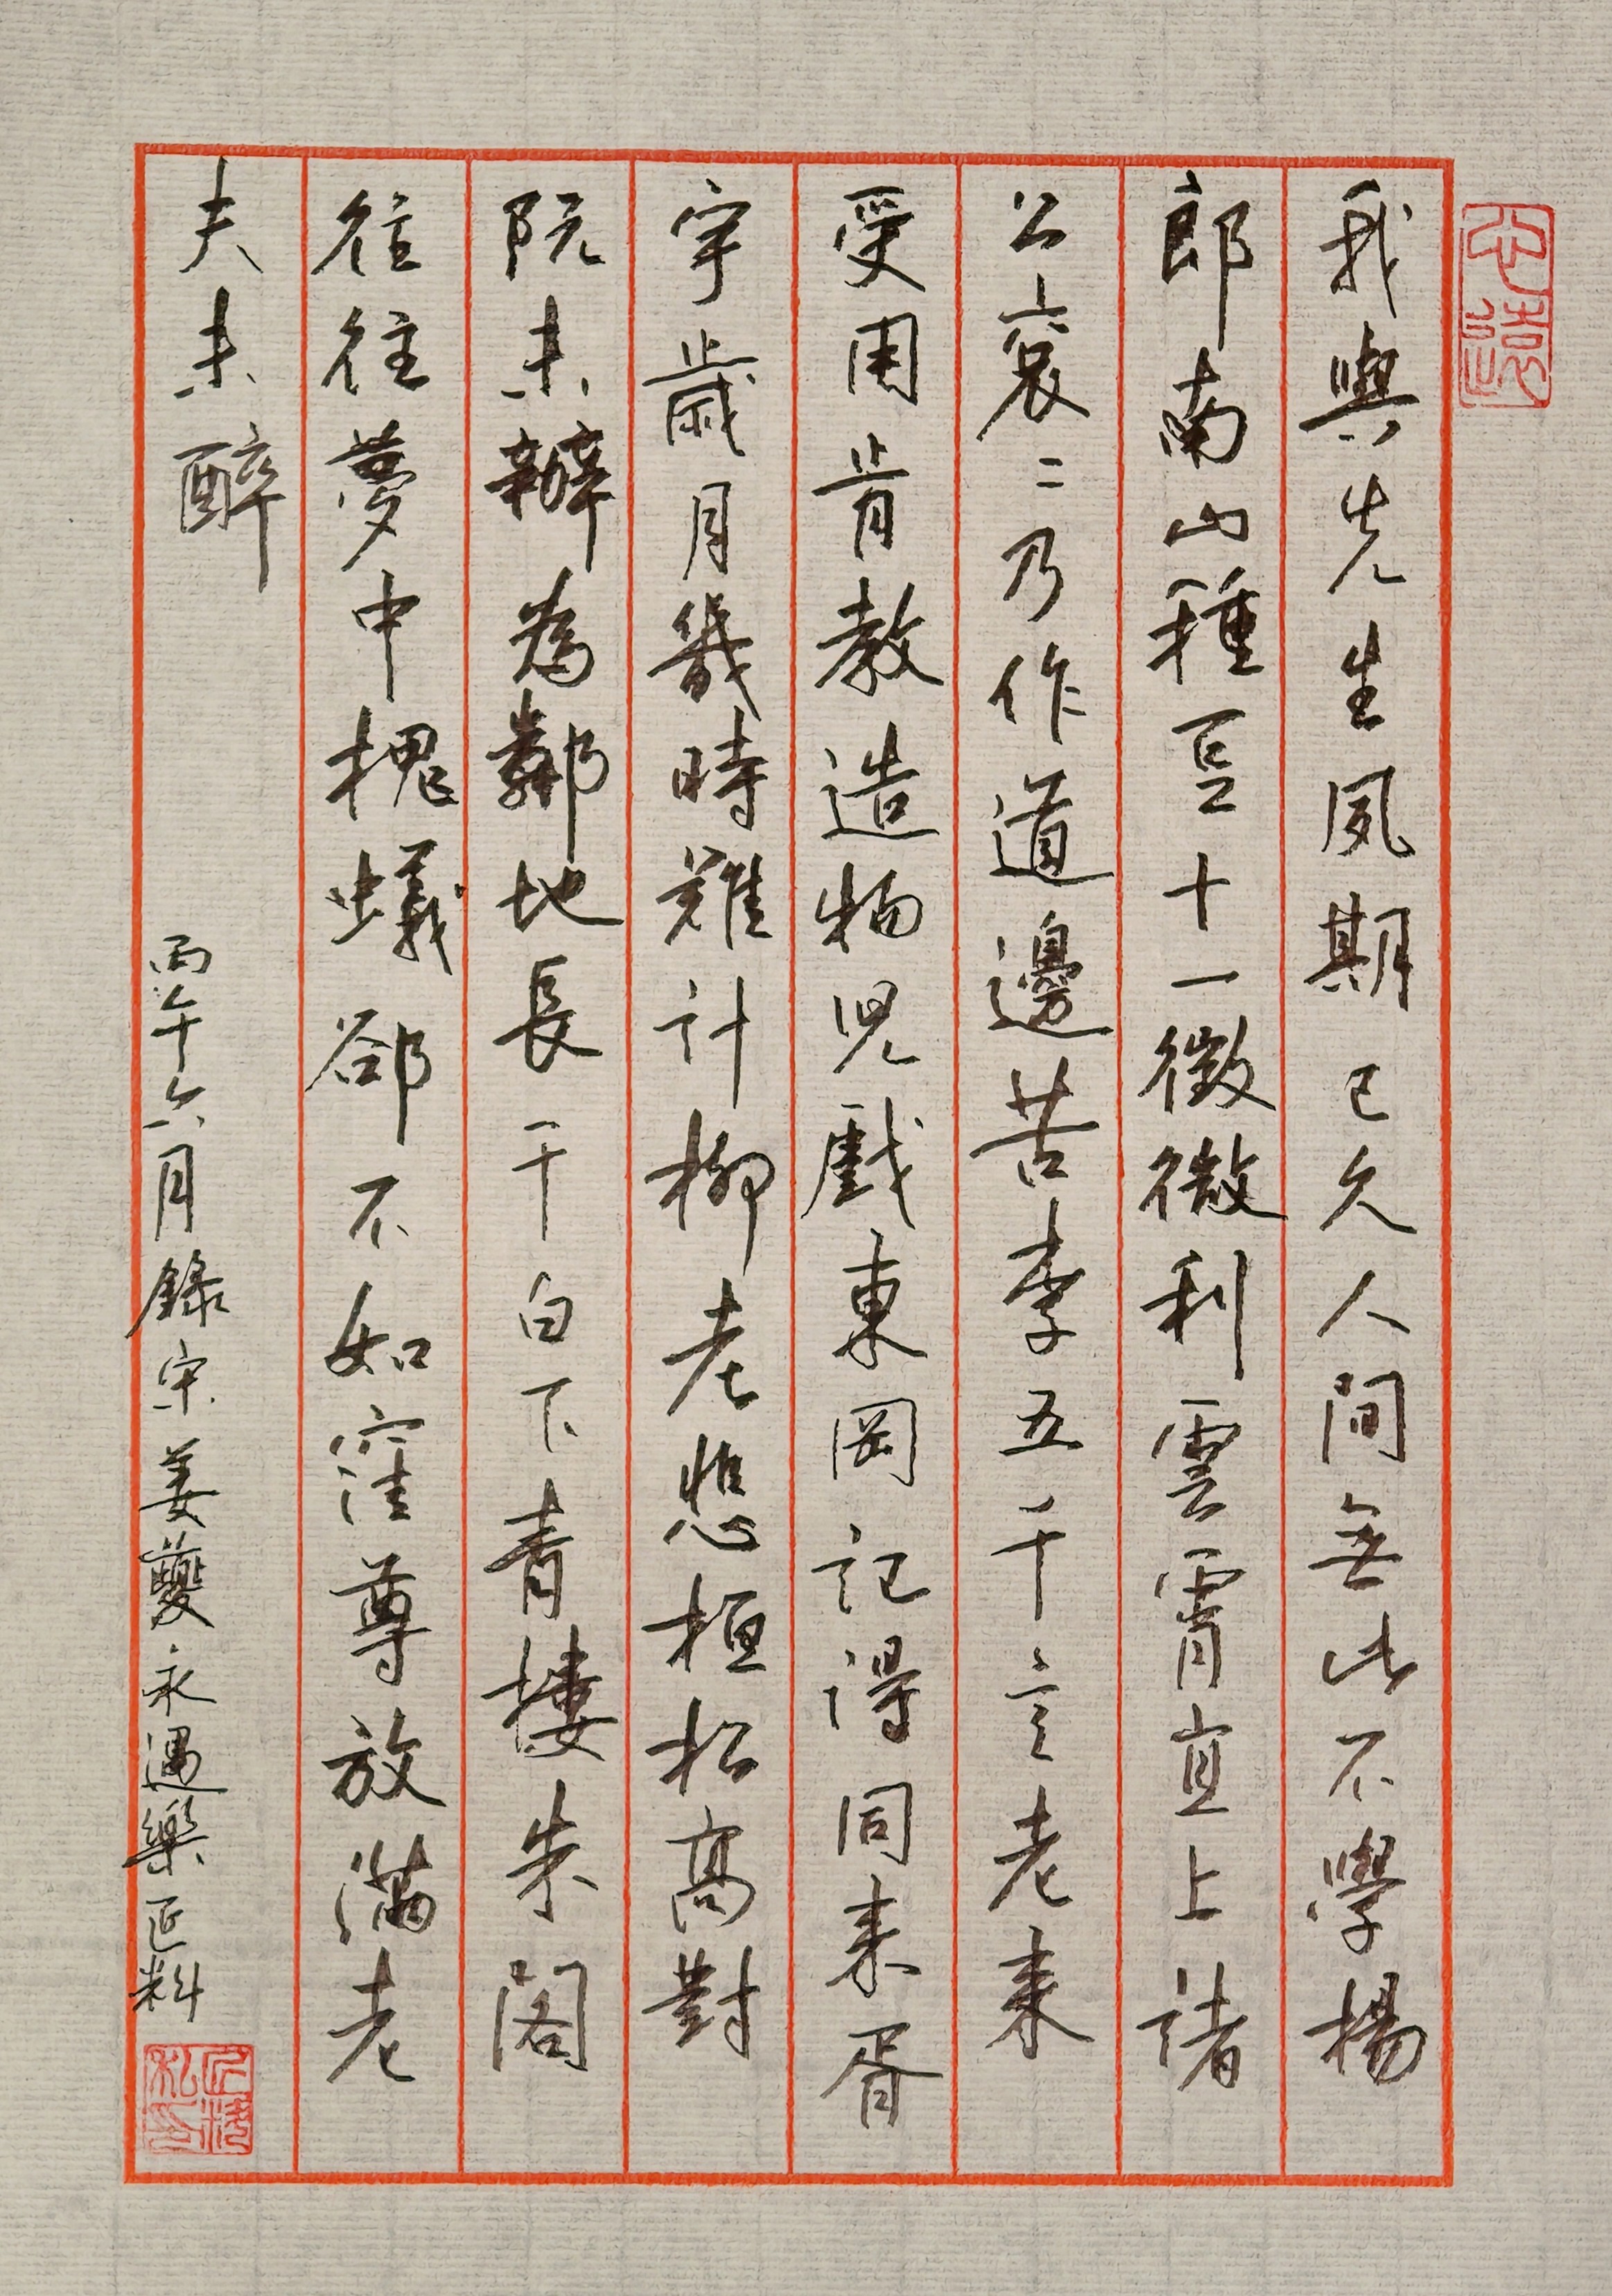 心遠
我與先生夙期已久人間無此不學楊
郎南山種豆十一徵微利雲霄直上諸
公衮〻乃作道邊苦李五千言老来
受用肯教造物兒戲東岡記得同来胥
宇歲月幾時難計柳老悲桓松高對
阮未辦為鄰地長干白下青樓朱閣
往往夢中槐蟻郤不如窪尊放滿老
夫未醉
丙午六月錄宋姜夔永遇樂 匠料